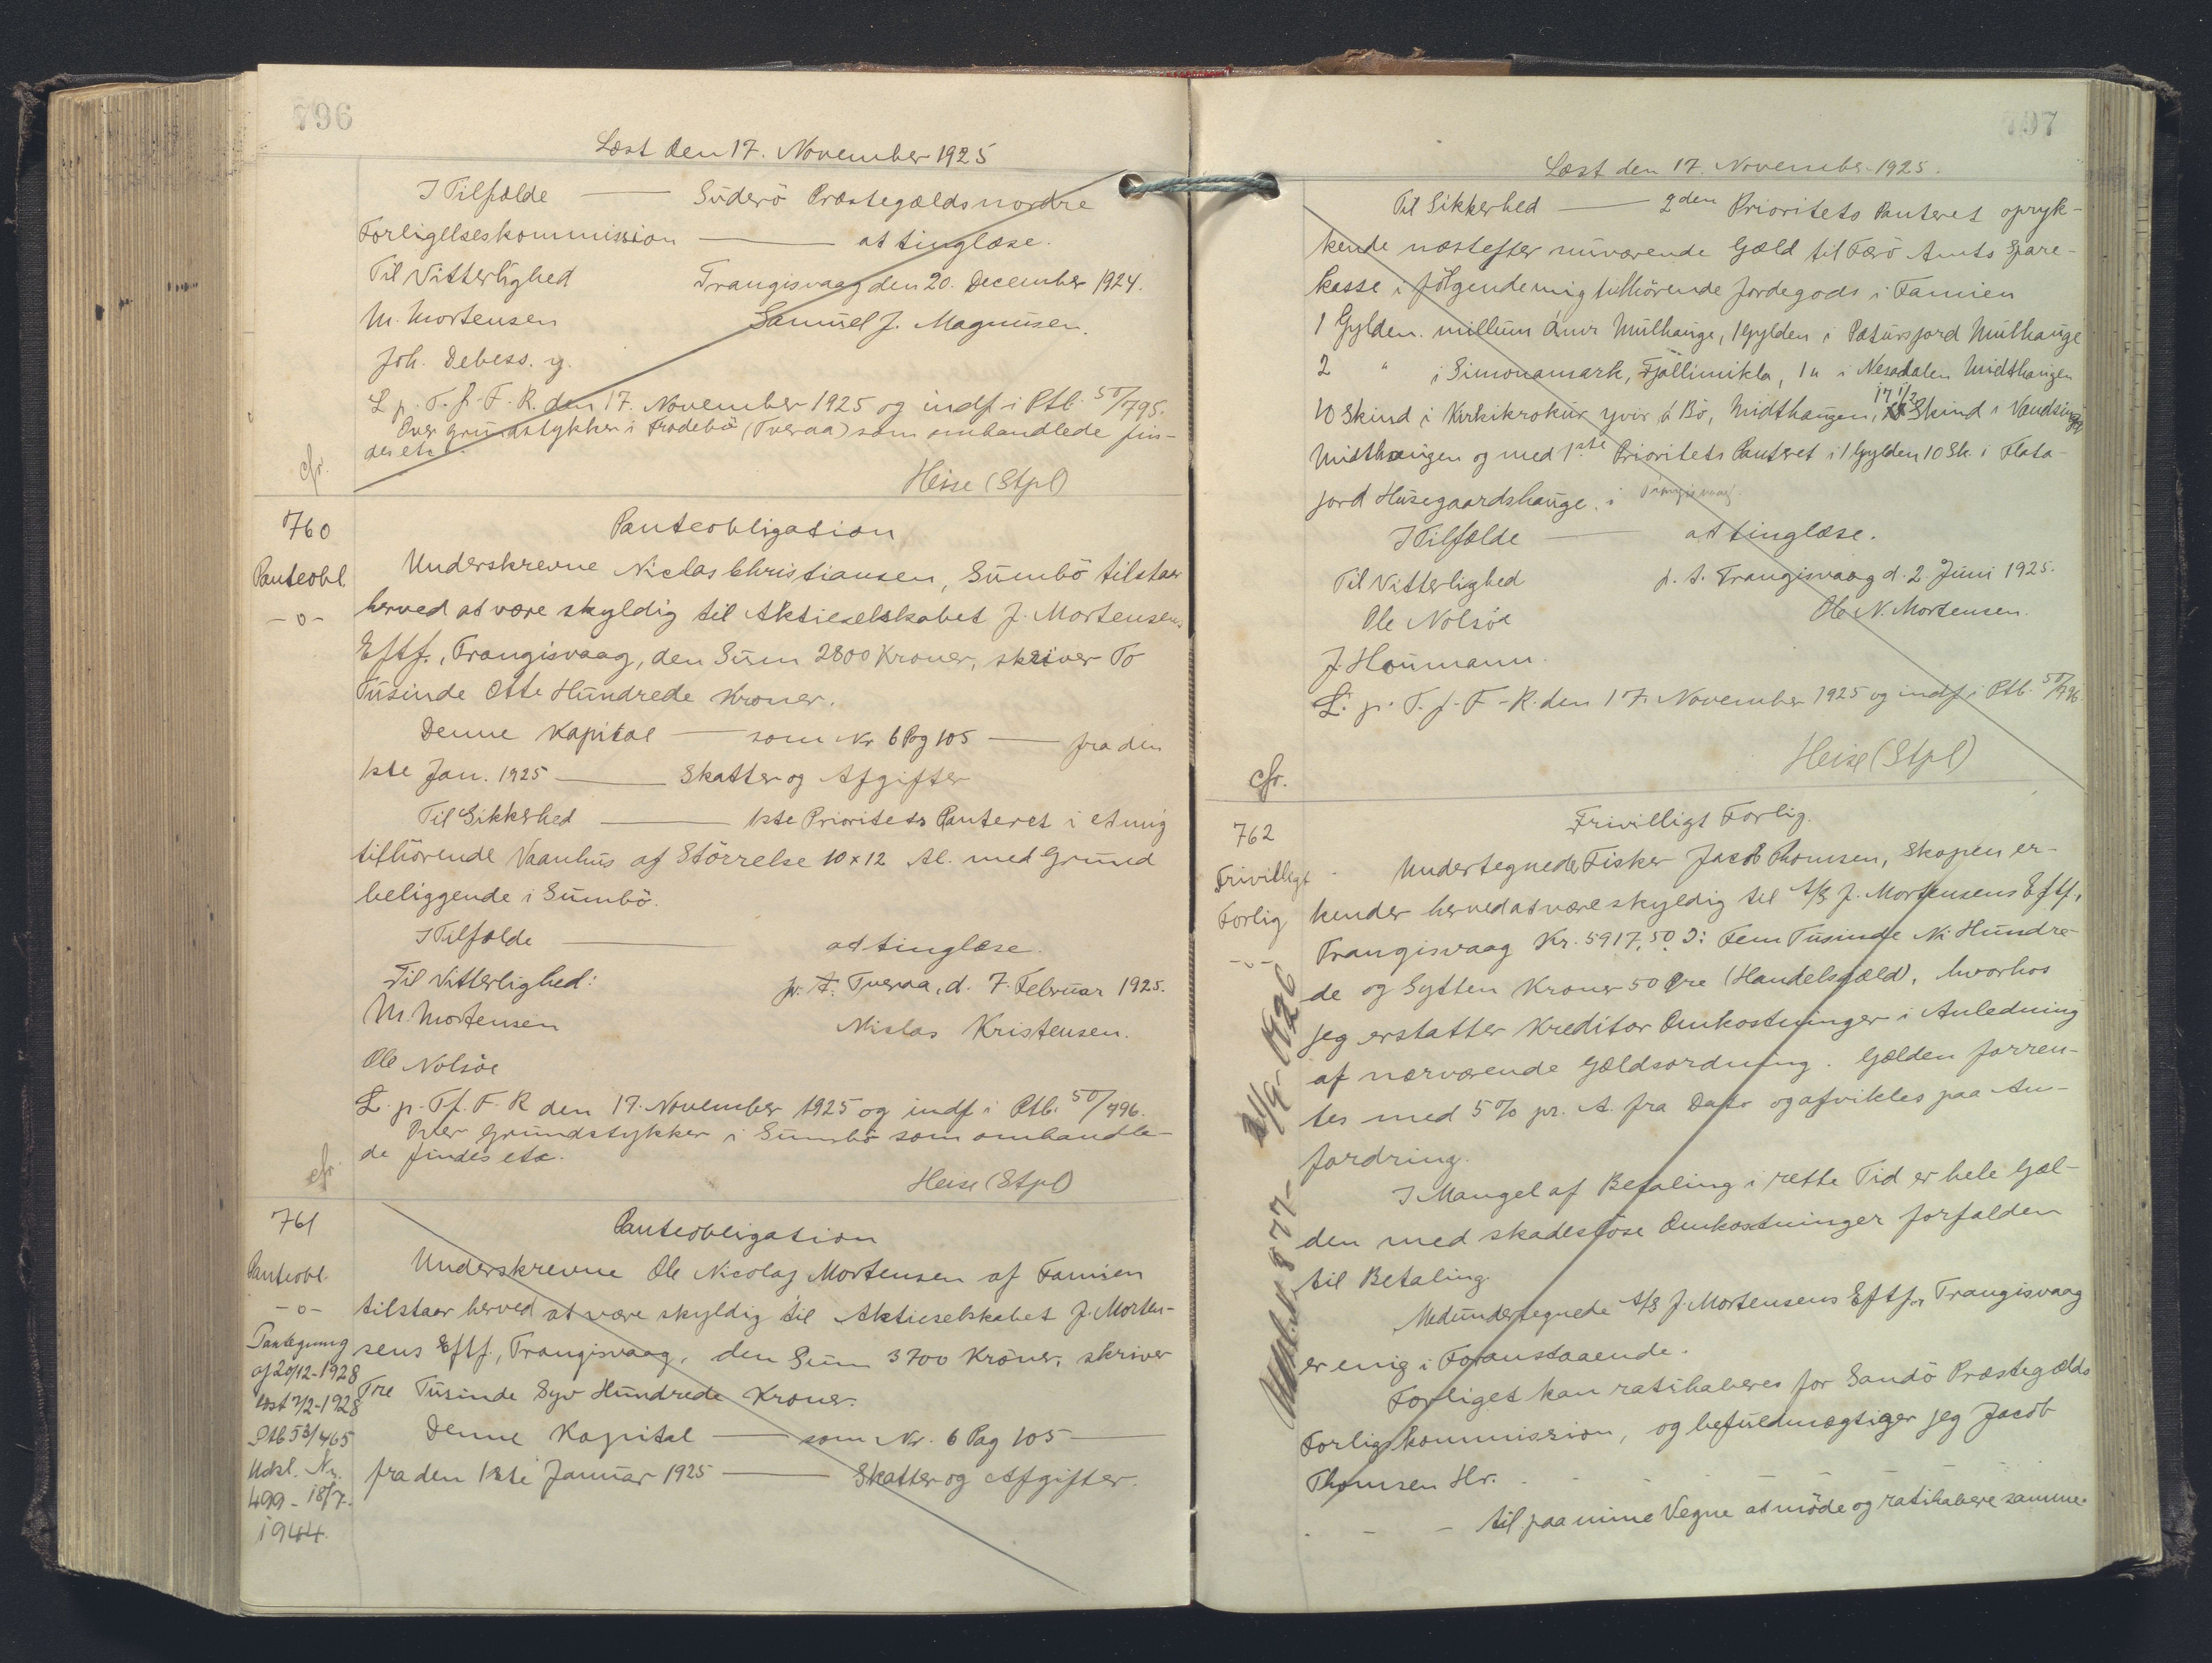 796
Læst den 17. November 1925
I Tilfælde — Suderö Præstegældsnordre
Forligelseskommission — at tinglæse.
Til Vitterlighed Trangisvaag den 20. December 1924.
M. Mortensen Samuel J. Magnusen.
Joh. Debess. y.
L. p. T. f. F. R. den 17. November 1925 og indf. i Ptb. 50/795.
Over grundstykker i Frodebö (Tveraa) som omhandlede fin-
des etc.
cfr. Heise (Stpl)
760 Panteobligation
Panteobl. Underskrevne Niclas Christiansen, Sumbö tilstaar
-o- herved at være skyldig til Aktieselskabet J. Mortensens
Eftf., Trangisvaag, den Sum 2800 Kroner, skriver To
Tusinde Otte Hundrede Kroner.
Denne Kapital — som Nr 6 Pag 105 — fra den
1ste Jan. 1925 — Skatter og Afgifter
Til Sikkerhed — 1ste Prioritets Panteret i et mig
tilhörende Vaanhus af Störrelse 10 x 12 Al. med Grund
beliggende i Sumbö.
I Tilfælde — at tinglæse.
Til Vitterlighed: p. t. Tveraa, d. 7. Februar 1925.
M. Mortensen Niclas Kristensen.
Ole Nolsöe
L. p. T. f. F. R den 17. November 1925 og indf. i Ptb. 50/796.
Over grundstykker i Sumbö som omhandle-
de findes etc.
cfr. Heise (Stpl)
761 Panteobligation
Panteobl. Underskrevne Ole Nicolaj Mortensen af Famien
-o- tilstaar herved at være skyldig til Aktieselskabet J. Morten-
sens Eftf., Trangisvaag, den Sum 3700 Kroner, skriver
Tre Tusinde Syv Hundrede Kroner.
Denne Kapital — som Nr. 6 Pag 105 —
fra den 1ste Januar 1925 — Skatter og Afgifter.
af 20/12-1928
læst 7/2-1928
Ptb 53/465
Udsl. Nr.
499 - 18/7-
1944.
797
Læst den 17. November 1925.
Til Sikkerhed — 2den Prioritets Panteret opryk-
kende næstefter nuværende Gæld til Færö Amts Spare-
kasse i fölgende mig tilhörende Jordegods i Famien
1 Gylden. millum áuir Mulhauge, 1 Gylden i Pætursjord Mulhauge
2 " i Simonamark, Fjøllimikla, 1 " i Nesadalen Midthaugen
10 Skind i Kirkikrokur yvir á Bö, Midthaugen, 17 1/2 Skind i
Midthaugen og med 1ste Prioritets Panteret i 1 Gylden 10 Sk. i Flata-
jord Husegaardshauge. i Trangisvaag.
I Tilfælde — at tinglæse.
Til Vitterlighed p. t. Trangisvaag d. 2 Juni 1925.
Ole Nolsöe Ole N. Mortensen.
J. Houmann.
L. p. T. f. F. R. den 17. November 1925 og indf. i Ptb. 50/796
cfr. Heise (Stpl)
762 Frivilligt Forlig.
Frivilligt Undertegnede Fisker Jacob Thomsen, Skopen er-
Forlig kender herved at være skyldig til A/S J. Mortensens Eftf.
-o- Trangisvaag Kr. 5917.50 ɔ: Fem Tusinde Ni Hundre-
de og Sytten Kroner 50 Øre (Handelsgæld), hvorhos
jeg erstatter Kreditor Omkostninger i Anledning
af nærværende Gældsordning. Gælden forren-
tes med 5% pr. A. fra Dato og afvikles paa An-
fordring.
I Mangel af Betaling i rette Tid er hele Gæl-
den med skadeslöse Omkostninger forfalden
til Betaling.
Medundertegnede A/S J. Mortensens Eftf., Trangisvaag
er enig i Foranstaaende.
Forliget kan ratihaberes for Sandö Præstegælds
Forligskommission, og befuldmægtiger jeg Jacob
Thomsen Hr.
til paa mine Vegne at möde og ratihabere samme.